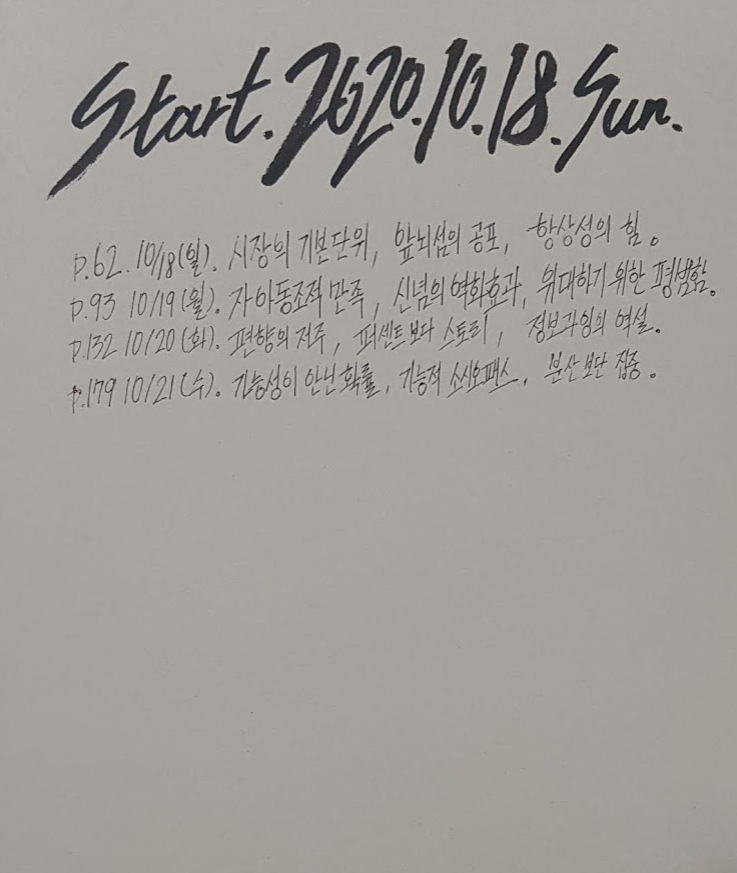 Start. 2020.10.18. Sun.
p.62. 10/18(일). 시장의 기본단위, 앞뇌섬의 공포, 항상성의 힘.
p.93 10/19(월). 자아동조적 만족, 신념의 역화효과, 위대하기 위한 평범함.
p.132 10/20(화). 편향의 저주, 퍼센트보다 스토리, 정보과잉의 역설.
p.179 10/21(수). 가능성이 안닌 확률, 기능적 소시오패스, 분산보단 집중.